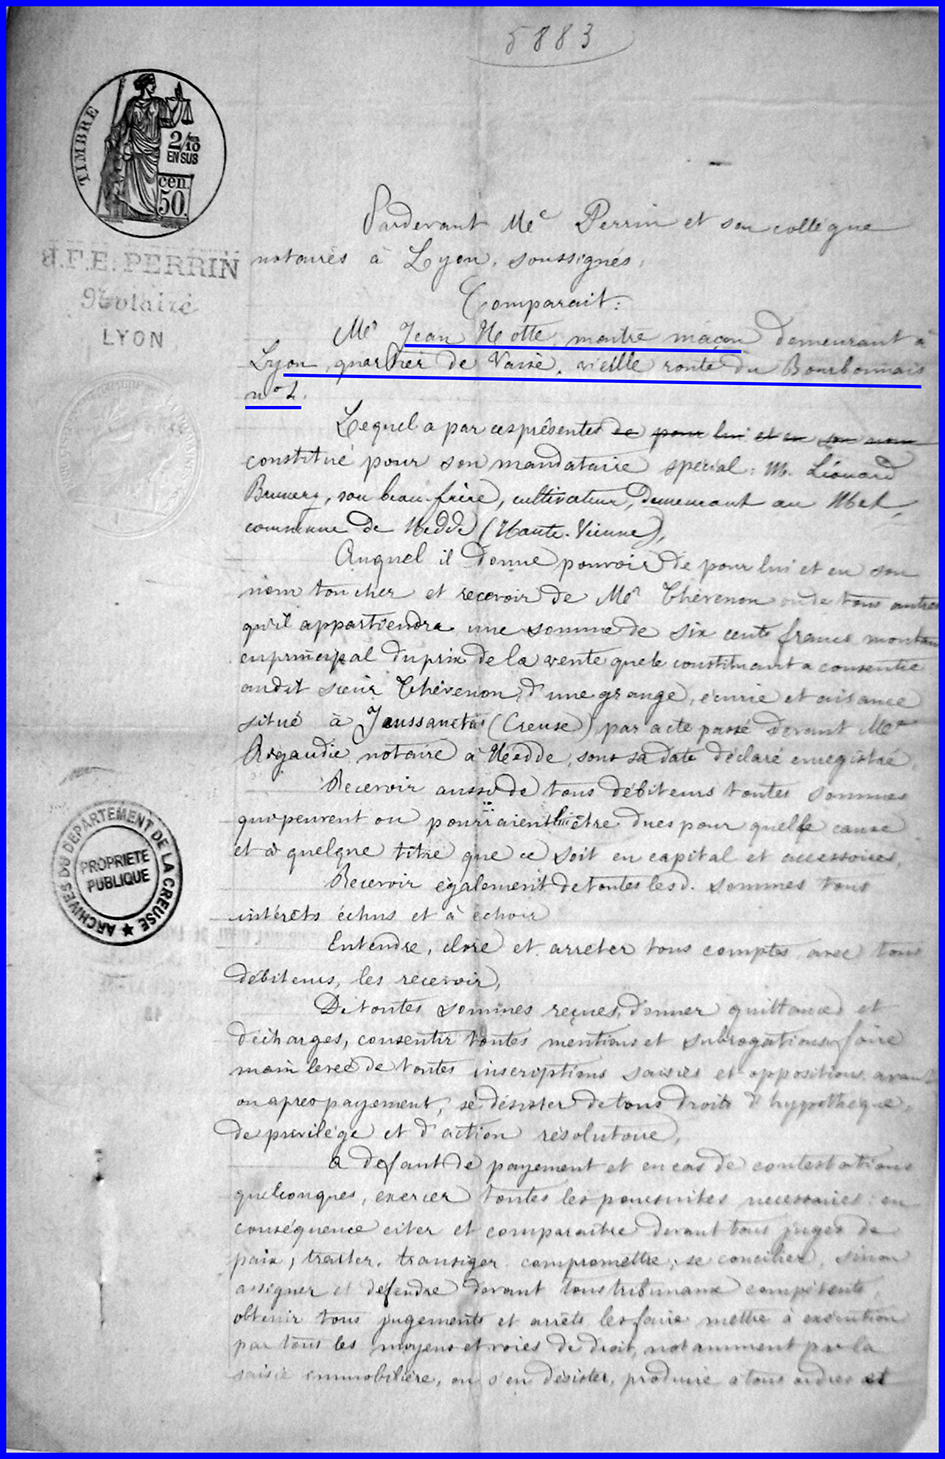 5883
TIMBRE
2/10
EN SUS
cen.
50.
J.F.E. PERRIN
Notaire
LYON
Pardevant Me Perrin et son collègue
notaires à Lyon, soussignés,
Comparait:
Mr Jean Notte, maitre maçon demeurant à
Lyon, quartier de Vaise, vieille route du Bourbonnais
n°
Lequel a par ces présentes de pour lui et en son nom
constitué pour son mandataire spécial: M. Léonard
son beau-frère, cultivateur, demeurant au
commune de Nedde (Haute-Vienne),
Auquel il donne pouvoir de pour lui et en son
nom toucher et recevoir de Mr Thévenon ou de tous autres
qu'il appartiendra une somme de six cents francs montant
en principal du prix de la vente que le constituant a consentie
audit sieur Thévenon, d'une grange, écurie et aisance
situé à (Creuse) par acte passé devant Me
Rigaudie, notaire à Nedde, sous sa date déclaré enregistré,
Recevoir aussi de tous débiteurs toutes sommes
qui peuvent ou pourraient lui être dues pour quelle cause
et à quelque titre que ce soit en capital et accessoires,
Recevoir également de toutes les d. sommes tous
intérêts échus et à échoir
Entendre, clore et arrêter tous comptes avec tous
débiteurs, les recevoir,
De toutes sommes reçues, donner quittance et
décharges, consentir toutes mentions et subrogations, faire
main levée de toutes inscriptions saisies et oppositions avant
ou après payement, se désister de tous droits d'hypothèque,
de privilège et d'action résolutoire,
a defaut de payement et en cas de contestations
quelconques, exercer toutes les poursuites nécessaires: en
conséquence citer et comparaitre devant tous juges de
paix, traiter, transiger, compromettre, se concilier, sinon
assigner et défendre devant tous tribunaux compétents,
obtenir tous jugements et arrêts les faire mettre à exécution
par tous les moyens et voies de droit, notamment par la
saisie immobilière, ou s'en désister, produire à tous ordres et
ARCHIVES DU DEPARTEMENT DE LA CREUSE
PROPRIETE
PUBLIQUE